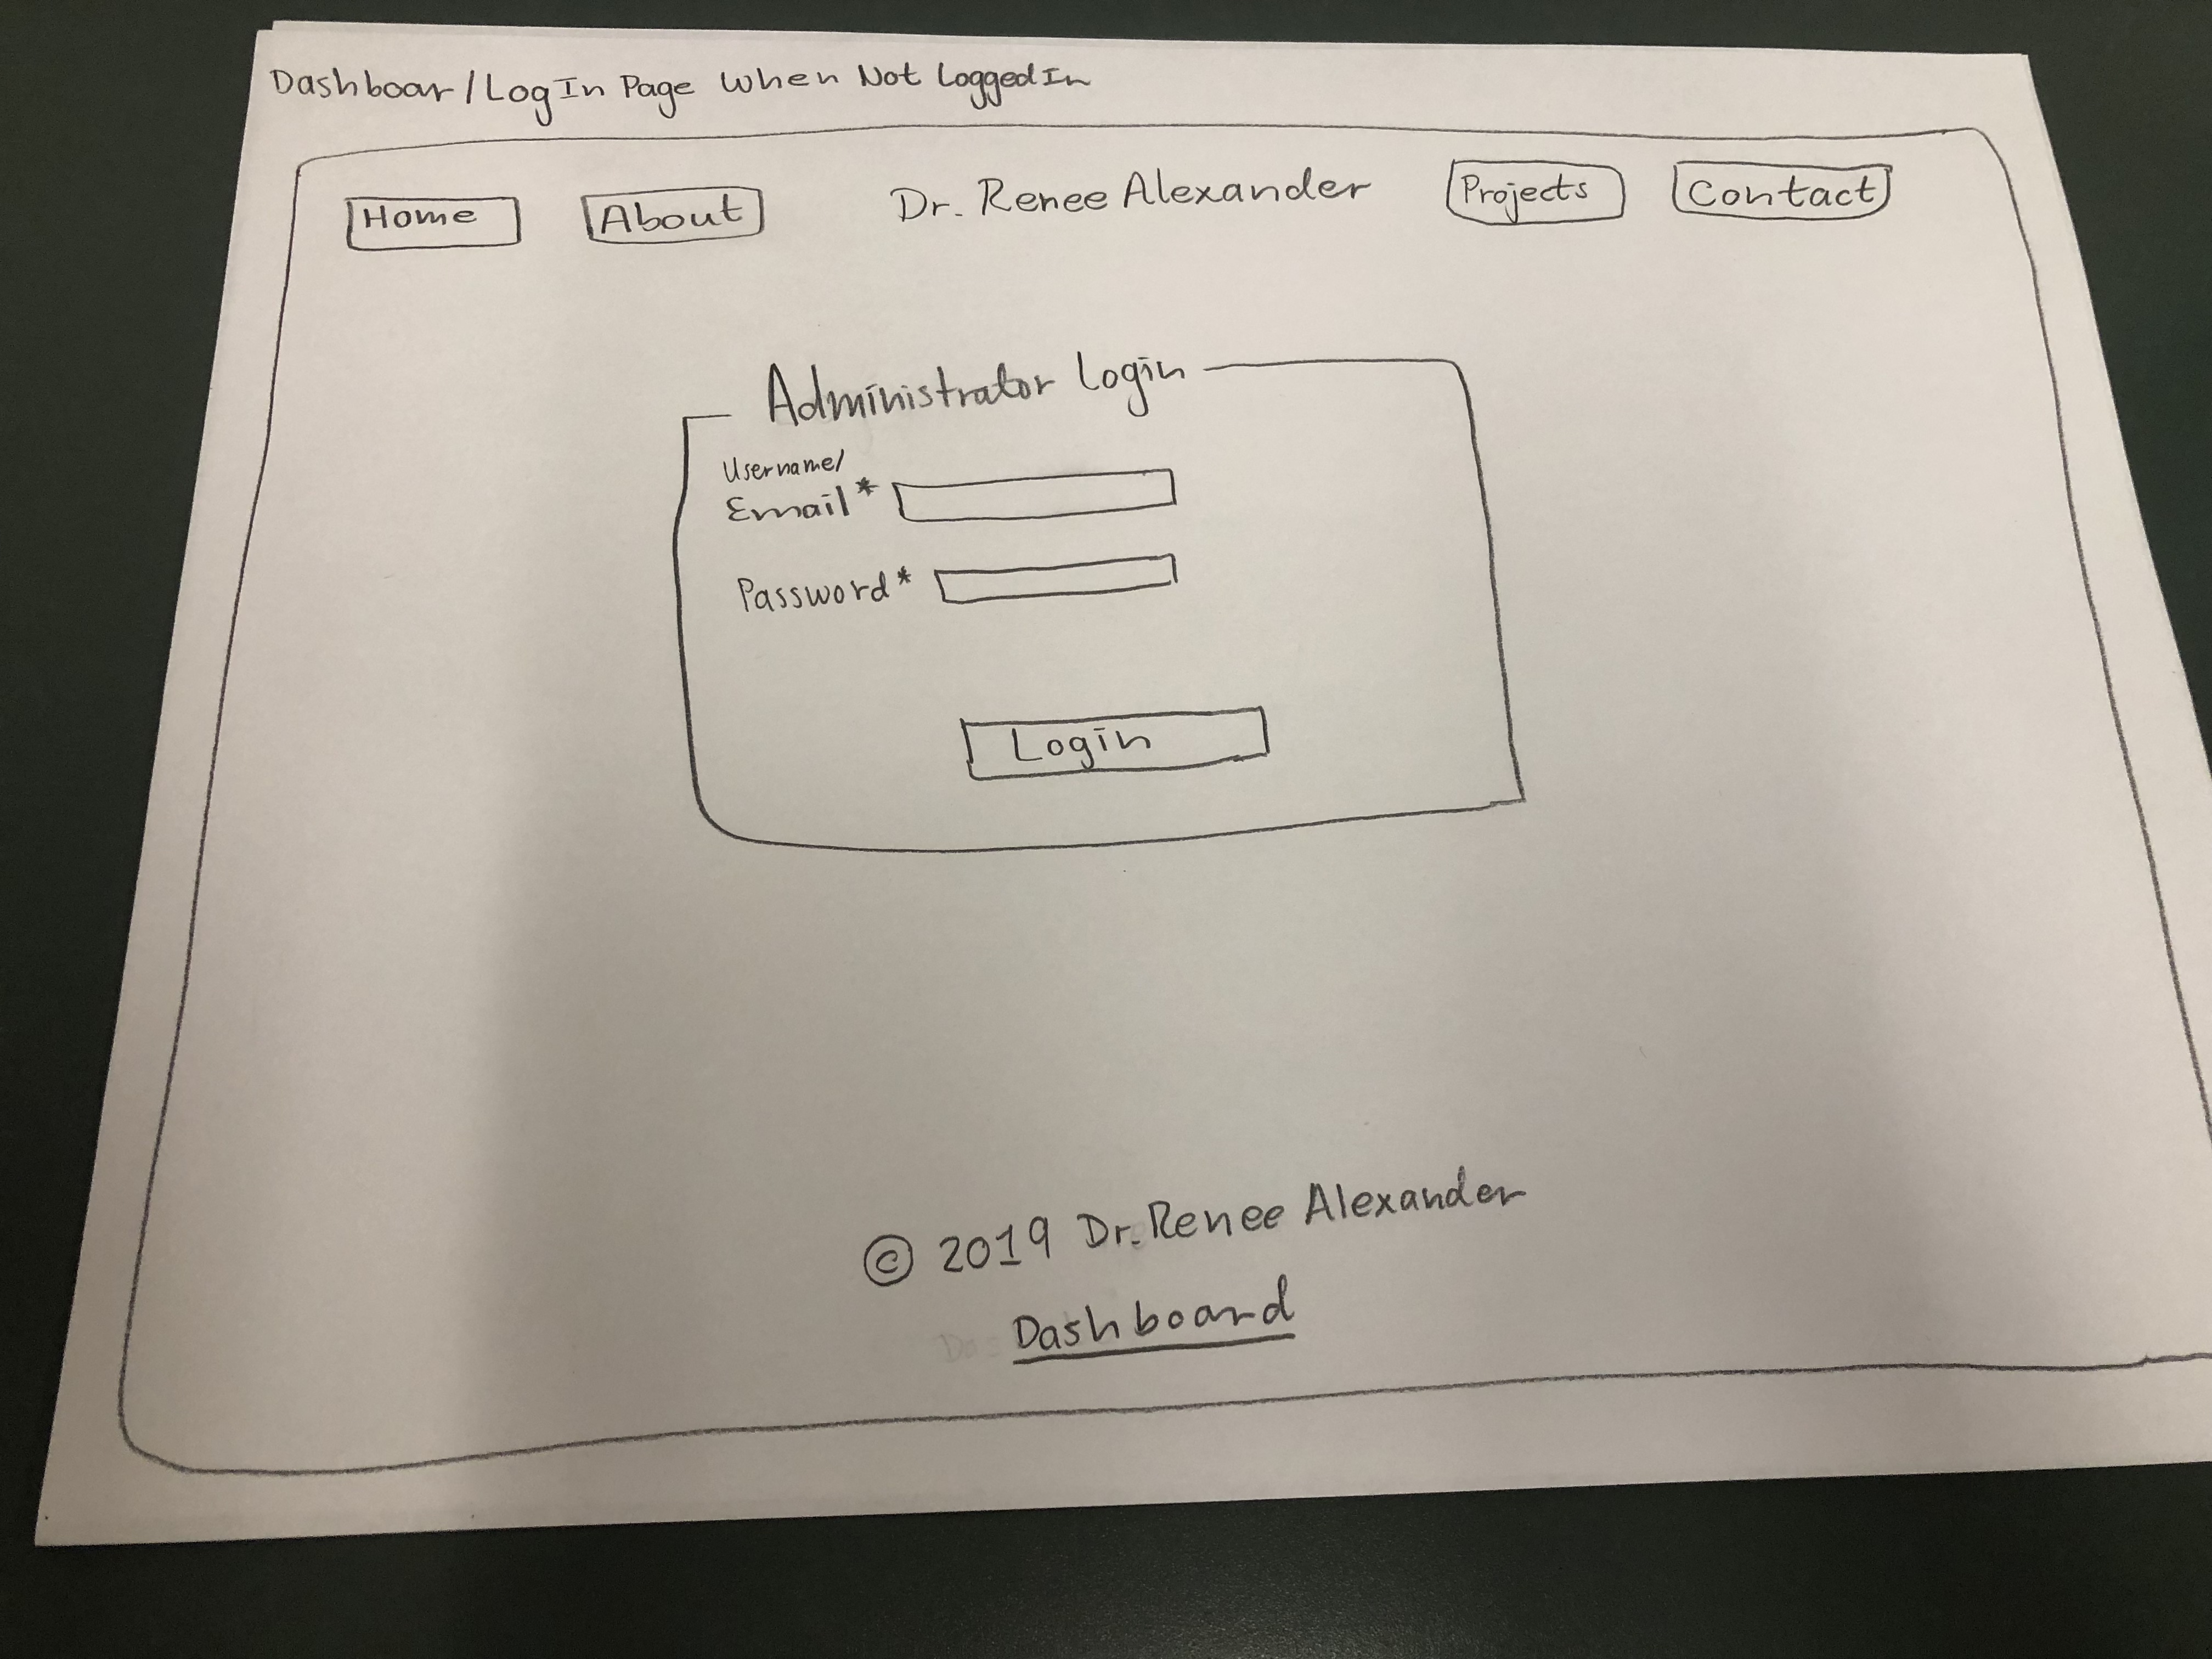 Dashboar/LogIn Page When Not LoggedIn
Home About Dr. Renee Alexander Projects Contact
Administrator Login
Username/
Email*
Password*
Login
© 2019 Dr. Renee Alexander
Dashboard